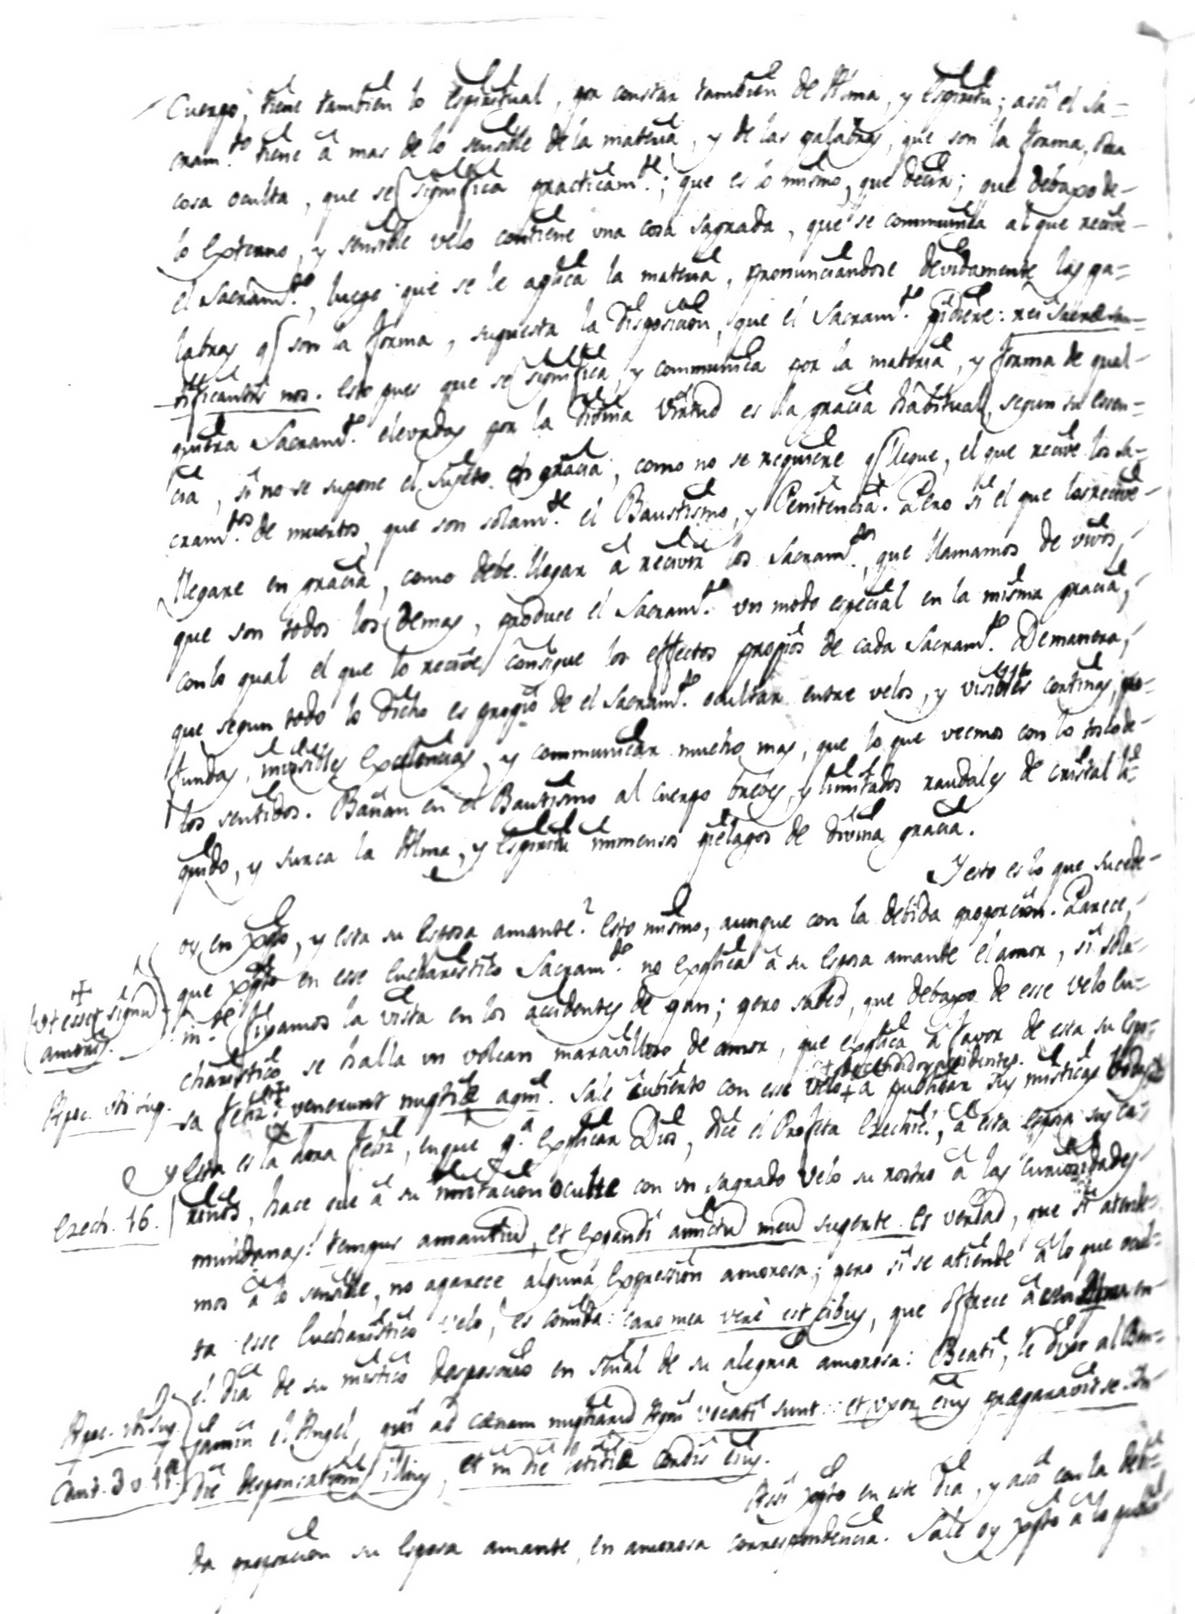 Cuerpo, tiene tambien lo Espiritual, por constar tambien de Alma, y Espiritu; assi el Sa=
cram.to tiene â mas de lo sensible de la materia, y de las palabras, que son la forma, otra
cosa oculta, que se significa practicam.te; que es lo mismo, que decir; que debaxo de-
lo externo, y sensible velo contiene una cosa sagrada, que se communica al que recive
el Sacram.to, luego que se le aplica la materia, pronunciandose devidamente las pa=
labras q son la forma, supuesta la Disposicion, que el Sacram.to pidiere: rei sacræ sanc-
tificantis nos. Esto pues que se significa, y communica por la materia, y forma de qual-
quiera Sacram.to elevadas por la Divina Virtud es la gracia habitual, segun su essen=
cia, si no se supone el sujeto en gracia, como no se requiere q llegue, el que recive los Sa-
cram.tos de muertos, que son solam.te el Baustismo, y Penitencia. Pero si el que los recive
llegare en gracia, como debe llegar â recivir los Sacram.tos, que llamamos de vivos,
que son todos los Demas, produce el Sacram.to un modo especial en la misma gracia,
con lo qual el que lo recive consigue los effectos propios de cada Sacram.to. De manera,
que segun todo lo Dicho es propio de el Sacram.to ocultar entre velos, y visibles cortinas, pro-
fundas, invisibles Excelencias, y communicar mucho mas, que lo que vemos con lo tosco de
los sentidos. Bañan en el Bautismo al cuerpo breves, y limitados raudales de cristal li=
quido, y surca la Alma, y Espiritu immensos pielagos de Divina gracia.
Y esto es lo que sucede
oy en Xpto, y esta su Esposa amante? Esto mismo, aunque con la debida proporcion. Parece,
que Xpto en esse Eucharistico Sacram.to no explica â su Esposa amante el amor, si sola-
m.te fixamos la vista en los accidentes de pan; pero sabed, que debaxo de esse velo Eu=
charistico se halla un volcan maravilloso de amor, que explica â favor de esta su Espo-
sa feliz: venerunt nuptiæ agni. Sale cubierto con esse velo + â publicar sus misticas bodas
+ ut esset signum
amoris.
Apoc. ubi sup.
y Esta es la hora feliz, en que p.a explicar Dios, dice el Profeta Ezechiel, â esta esposa sus ca-
riños, hace que â su imitacion oculte con un sagrado velo su rostro â las curiosidades
Ezech. 16.
mundanas: tempus amantium, et expandi amictum meum super te. Es verdad, que si atende-
mos â lo sensible, no aparece alguna expression amorosa; pero si se atiende â lo que ocul-
ta esse Eucharistico velo, es comida: caro mea verè est cibus, que offrece â esta Alma en
el Dia de su mistico desposorio en señal de su alegria amorosa: Beati, le dixo al Ben=
jamin el Angel, qui ad cœnam nuptiarum Agni vocati sunt: et uxor eius præparavit se. In
Apoc. ubi sup.
die desponsationis illius, et in die lætitiæ cordis eius.
Cant. 3 v. 11.
Assi Xpto en este Dia, y assi con la debi-
da proporcion su Esposa amante, en amorosa correspondencia. Sale oy Xpto â lo